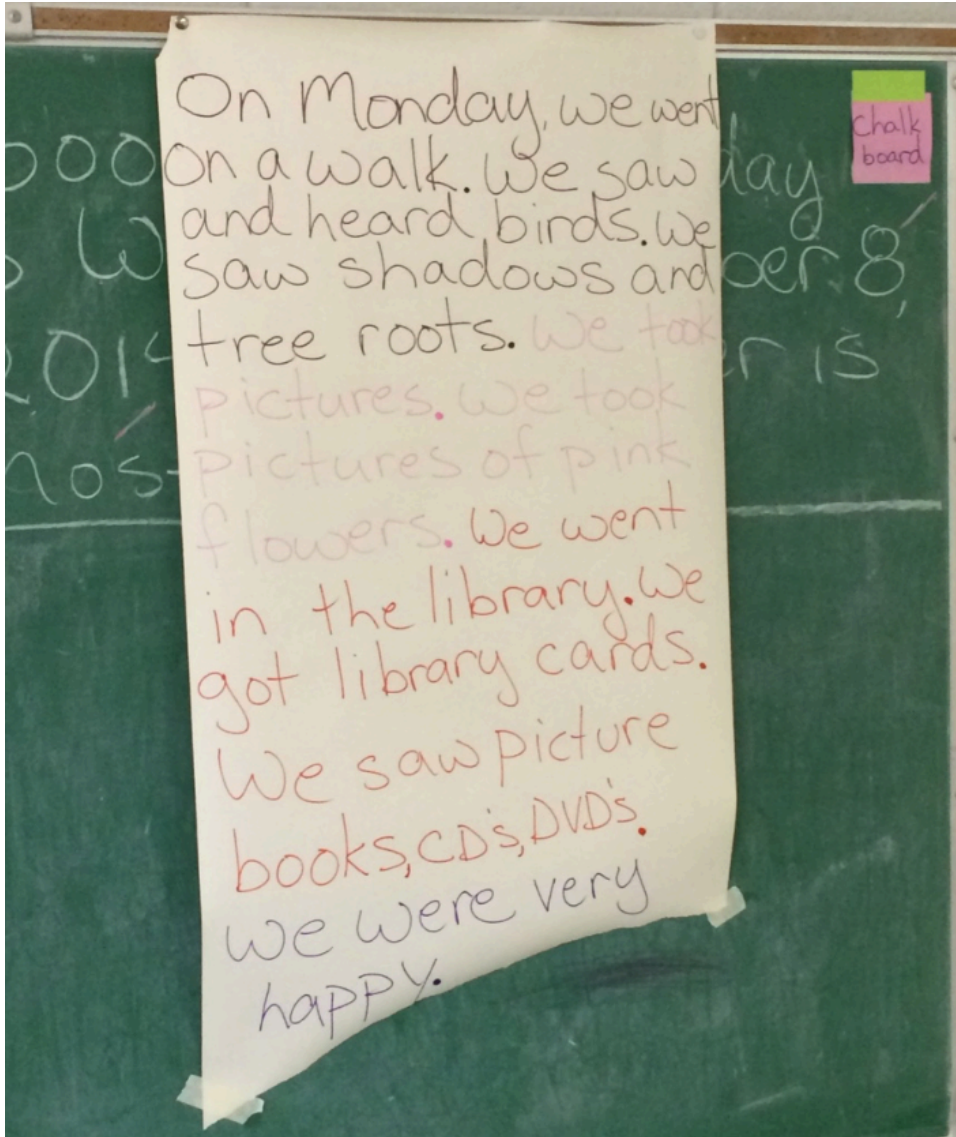 On Monday, we went
on a walk. We saw
and heard birds. We
saw shadows and
tree roots. We took
pictures. We took
pictures of pink
flowers. We went
in the library. We
got library cards.
We saw picture
books, CD's, DVD's.
We were very
happy.
Chalk
board
000
day
W
ber 8,
201
er is